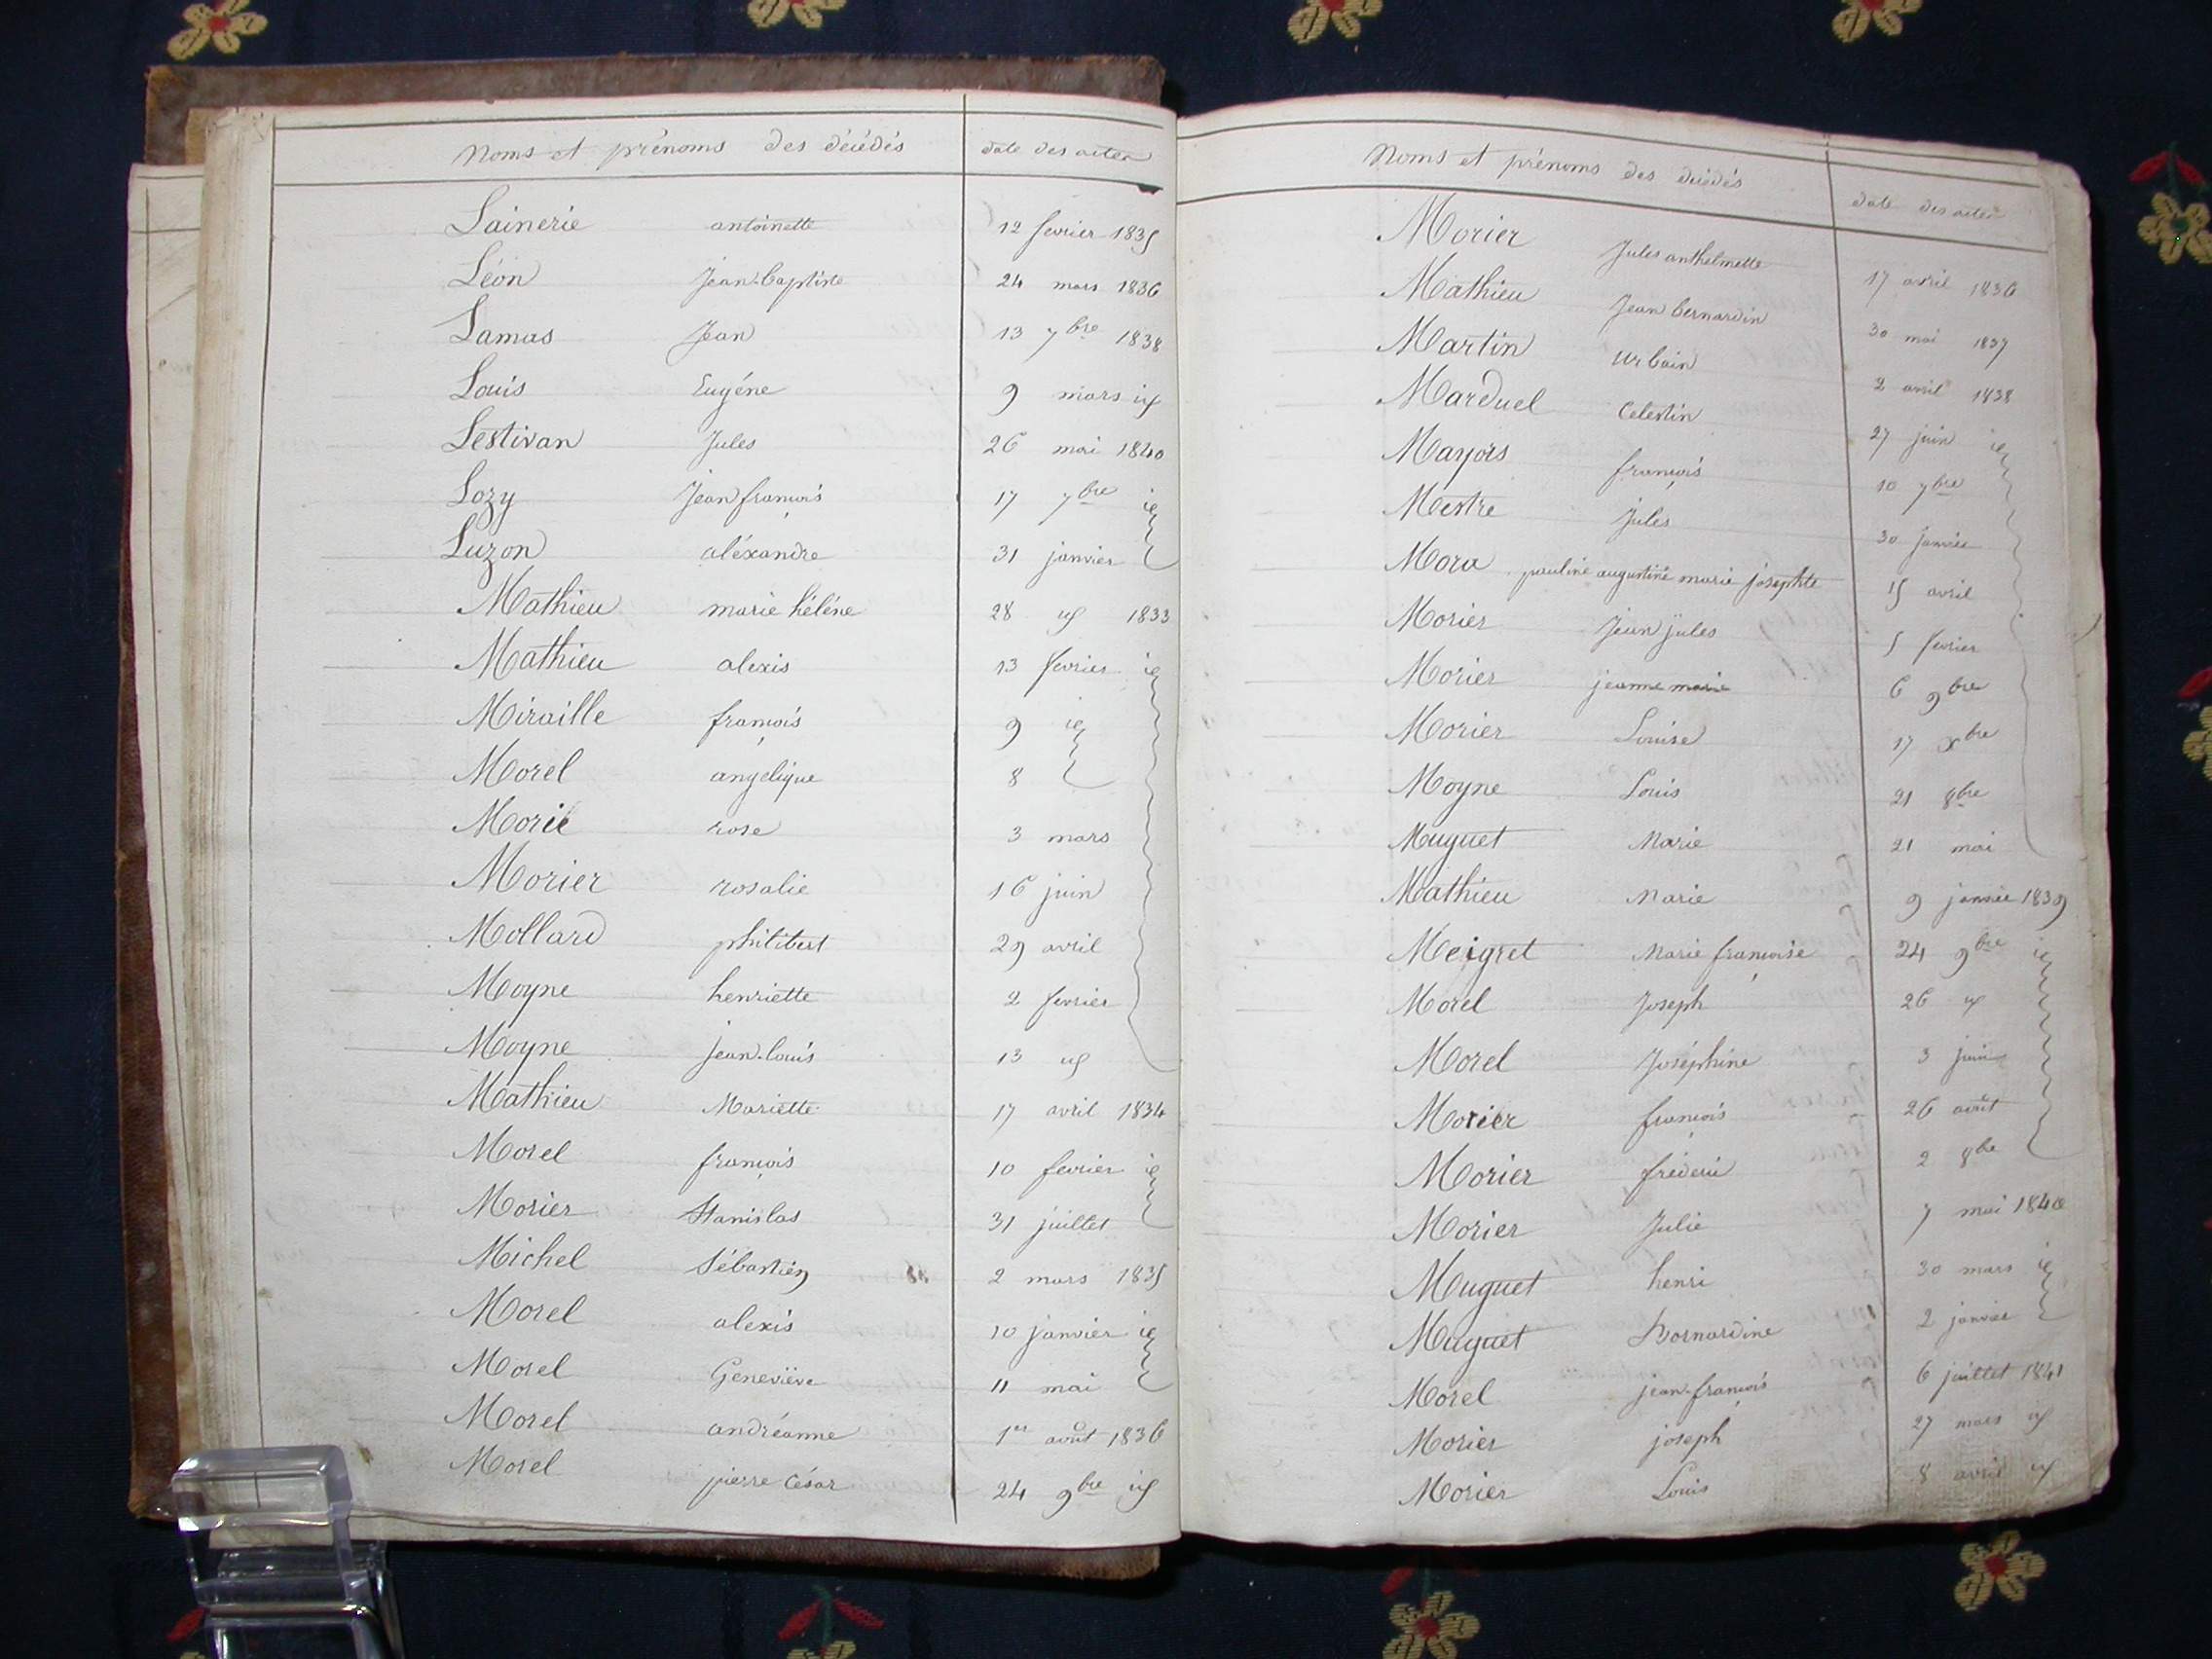 Noms et prénoms des décédés date des actes
Lainerie antoinette 12 fevrier 1835
Léon Jean-Baptiste 24 mars 1836
Lamas Jean 13 7bre 1838
Louis Eugéne 9 mars id
Lestivan Jules 26 mai 1840
Lozy Jean françois 17 7bre id
Luzon aléxandre 31 janvier
Mathieu marie héléne 28 id 1833
Mathieu alexis 13 fevrier id
Miraille françois 9 id
Morel angelique 8
Morié rose 3 mars
Morier rosalie 16 juin
Mollard philibert 29 avril
Moyne henriette 2 fevrier
Moyne jean-louis 13 id
Mathieu Mariette 17 avril 1834
Morel françois 10 fevrier id
Morier Stanislas 31 juillet
Michel Sébastien 2 mars 1835
Morel alexis 10 janvier id
Morel Geneviève 11 mai
Morel andréanne 1er août 1836
Morel pierre César 24 9bre id
Noms et prénoms des décédés date des actes
Morier Jules anthelmette 17 avril 1836
Mathieu Jean bernardin 30 mai 1837
Martin urbain 2 avril 1838
Marduel Celestin 27 juin id
Mayors françois 10 7bre
Mestre Jules 30 Janvier
Mora pauline augustine marie josephte 15 avril
Morier Jean jules 5 fevrier
Morier jeanne marie 6 9bre
Morier Louise 17 xbre
Moyne Louis 21 8bre
Muguet Marie 21 mai
Mathieu Marie 9 janvier 1839
Meigret Marie françoise 24 9bre id
Morel Joseph 26 id
Morel Joséphine 3 juin
Morier françois 26 août
Morier fréderic 2 8bre
Morier Julie 7 mai 1840
Muguet henri 30 mars id
Muguet Bernardine 2 janvier
Morel jean-françois 6 juillet 1841
Morier joseph 27 mars id
Morier Louis 8 avril id